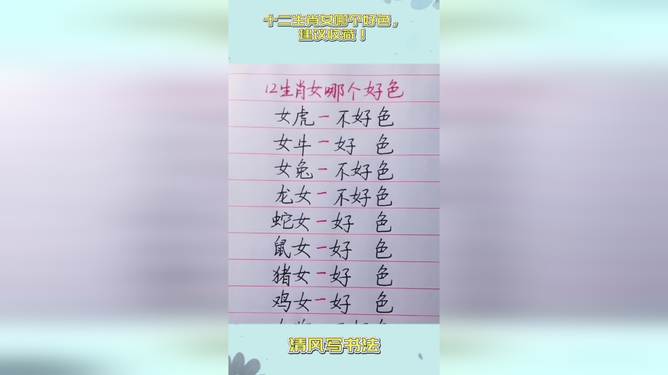 十二生肖女哪个好色，
建议收藏！
12生肖女哪个好色
女虎-不好色
女牛-好 色
女兔-不好色
龙女-不好色
蛇女-好 色
鼠女-好 色
猪女-好 色
鸡女-好 色
清风写书法